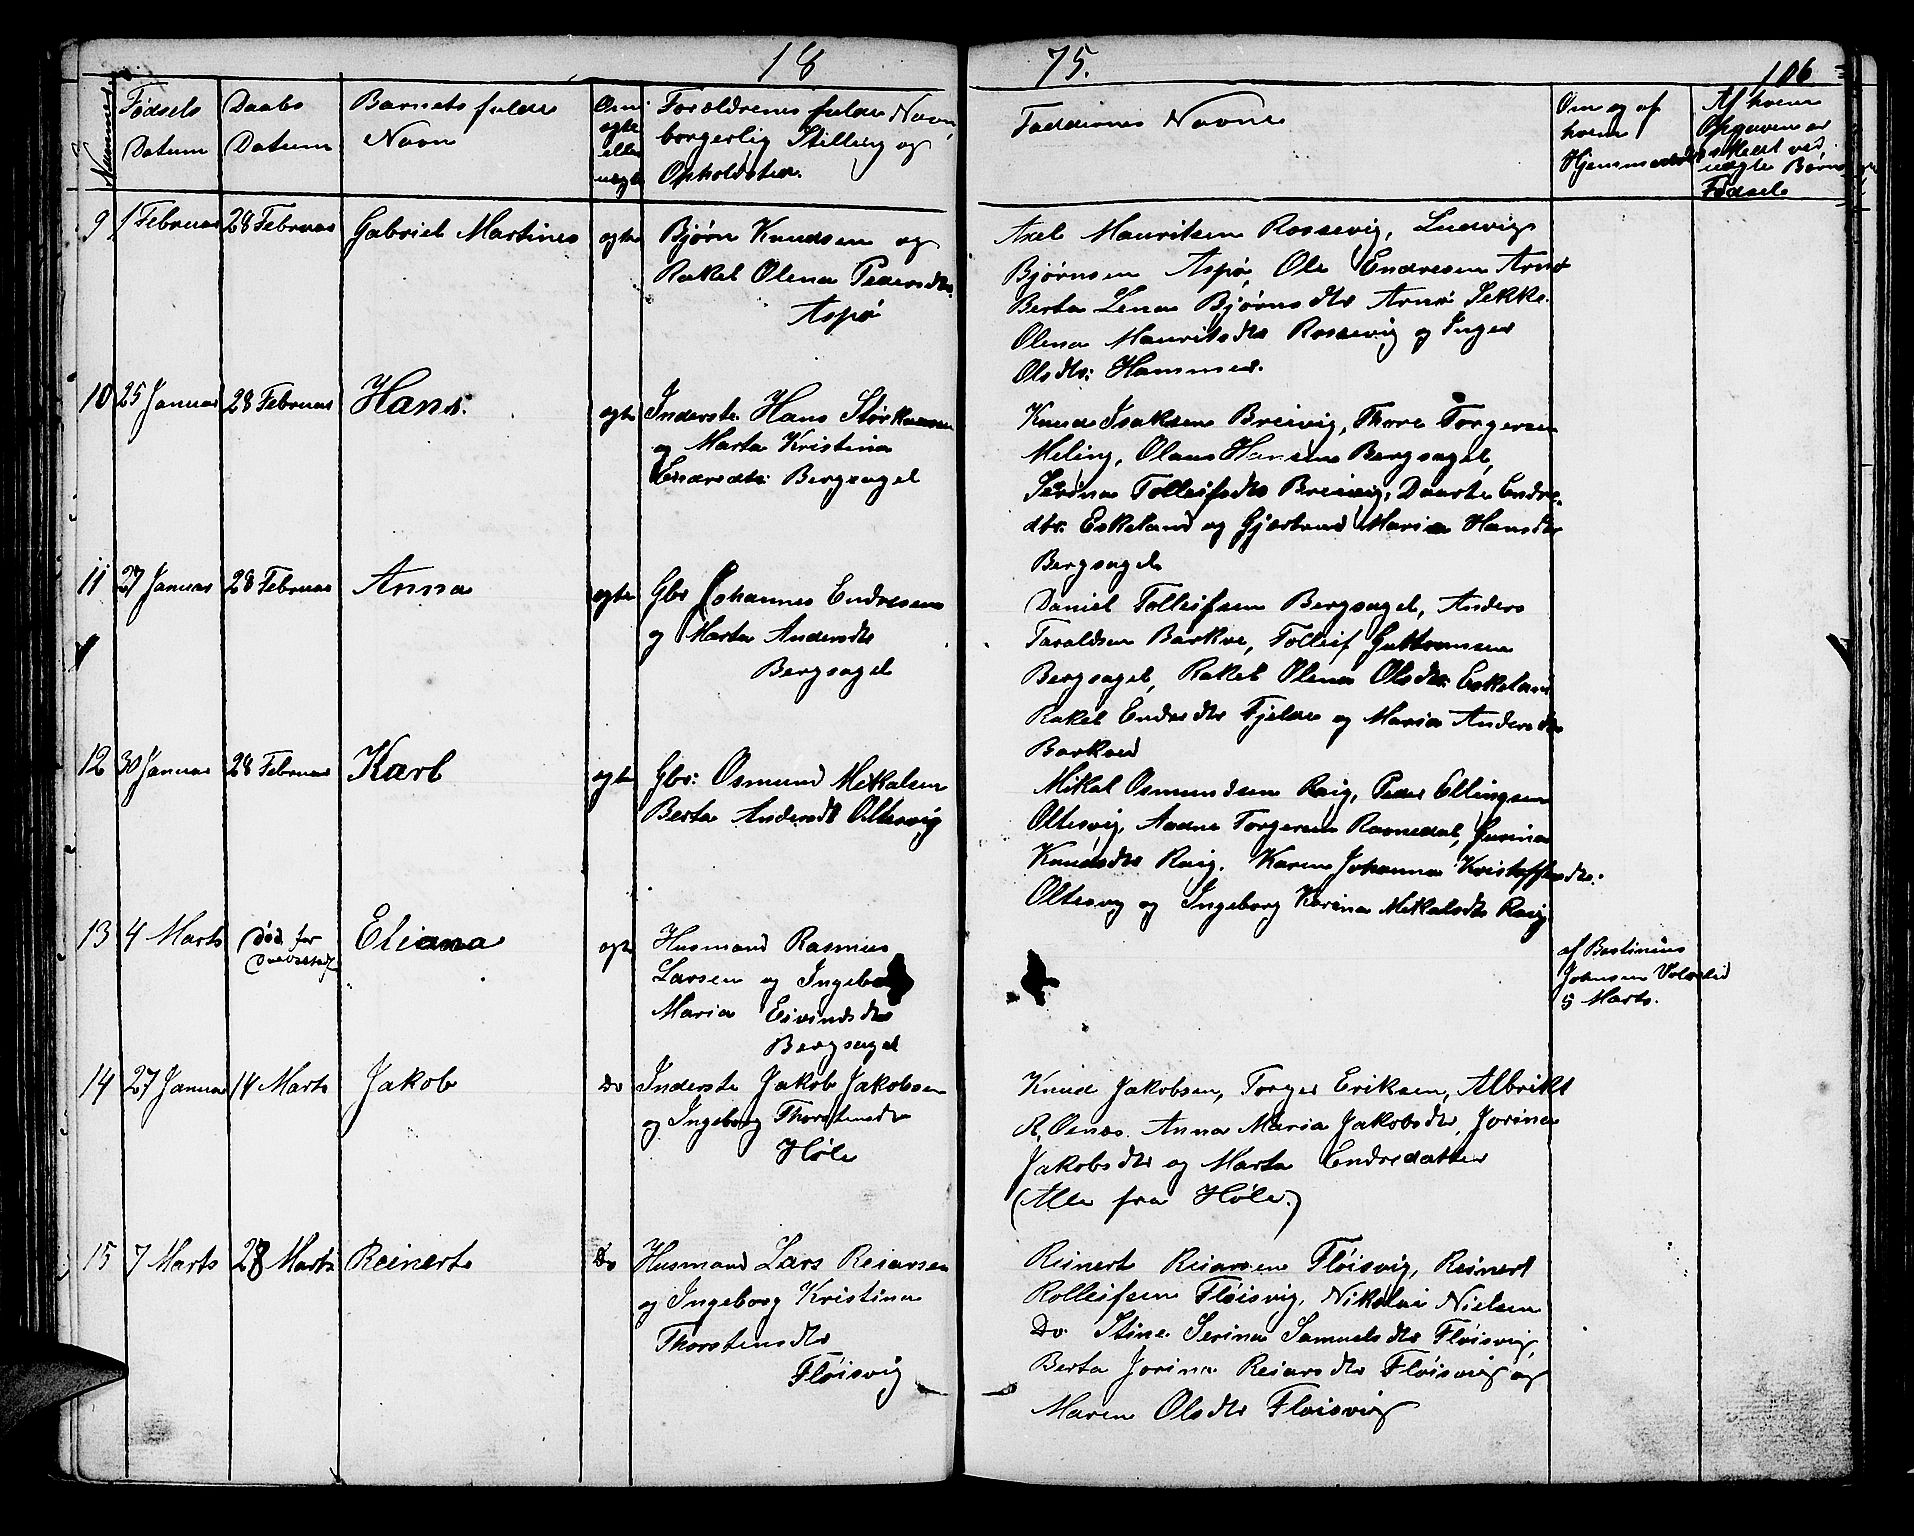 18 75. 106
Nummer
Fødsels
Datum
Daabs
Datum
Barnets fulde
Navn
Om
ægte
eller
uægte
Forældrenes fulde Navn,
borgerlig Stilling og
Opholdsted.
Faddernes Navne
Om og af
hvem
Hjemmedøbt
Af hvem
Opgaven er
meldt ved
uægte Børns
Fødsel
9 1 Februar 28 Februar Gabriel Martines ægte
Bjørn Knudsen og
Rakel Olena Pedersdtr.
Aspø
Axel Mauritsen Rossevig, Ludvig
Bjørnsen Aspø, Ole Endresen Arnø
Berta Lena Bjørnsdtr Arnø Sekke.
Olena Mauritsdtr Rossevig og Inger
Olsdtr: Hammer.
10 25 Januar 28 Februar Hans. ægte
Inderste Hans Størkersen
og Marta Kristina
Endredtr: Bergsagel
Knud Isaksen Breivig, Thore Torgersen
Meling, Olaus Hansen Bergsagel,
Serina Tolleifsdtr Breivig, Daarte Endre-
dtr. Eskeland og Gjertrud Maria Hansdtr
Bergsagel
11 27 Januar 28 Februar Anna ægte
Gbr Johannes Endresen
og Marta Andersdtr
Bergsagel
Daniel Tolleifsen Bergsagel, Anders
Taraldsen Barkve, Tolleif Guttormsen
Bergsagel, Rakel Olena Olsdtr. Eskeland
Rakel Endredtr Fjelde og Maria Andersdtr
Barkved
12 30 Januar 28 Februar Karl ægte
Gbr: Osmund Mikalsen
Berta Andersdt Oltesvig
Mikal Osmundsen Røig, Peder Ellingsen
Oltesvig, Aadne Torgersen Ravnedal, Gurina
Knudsdtr Røig. Karen Johanna Kristoffersdtr:
Oltesvig og Ingeborg Karina Mikalsdtr Røig
13 4 Marts Død før
Daabstid Eliana ægte
Husmand Rasmus
Larsen og Ingeborg
Maria Eivindsdtr
Bergsagel
af Bastinius
Johnsen Voldslid
5 Marts.
14 27 Januar 14 Marts Jakob Do
Inderste Jakob Jakobsen
og Ingeborg Thorstensdtr
Høle
Knud Jakobsen, Torger Eriksen, Albrikt
R. Osnes. Anna Maria Jakobsdtr, Jorina
Jakobsdtr og Marta Endredatter
(Alle fra Høle.)
15 7 Marts 28 Marts Reinert Do
Husmand Lars Reiarsen
og Ingeborg Kristina
Thorstensdtr
Fløisvig
Reinert Reiarsen Fløisvig, Reinert
Rolleifsen Fløisvig, Nikolai Nielsen
Do. Stine Serina Samuelsdtr Fløisvig,
Berta Jorina Reiarsdtr Fløisvig og
Maren Olsdtr Fløisvig